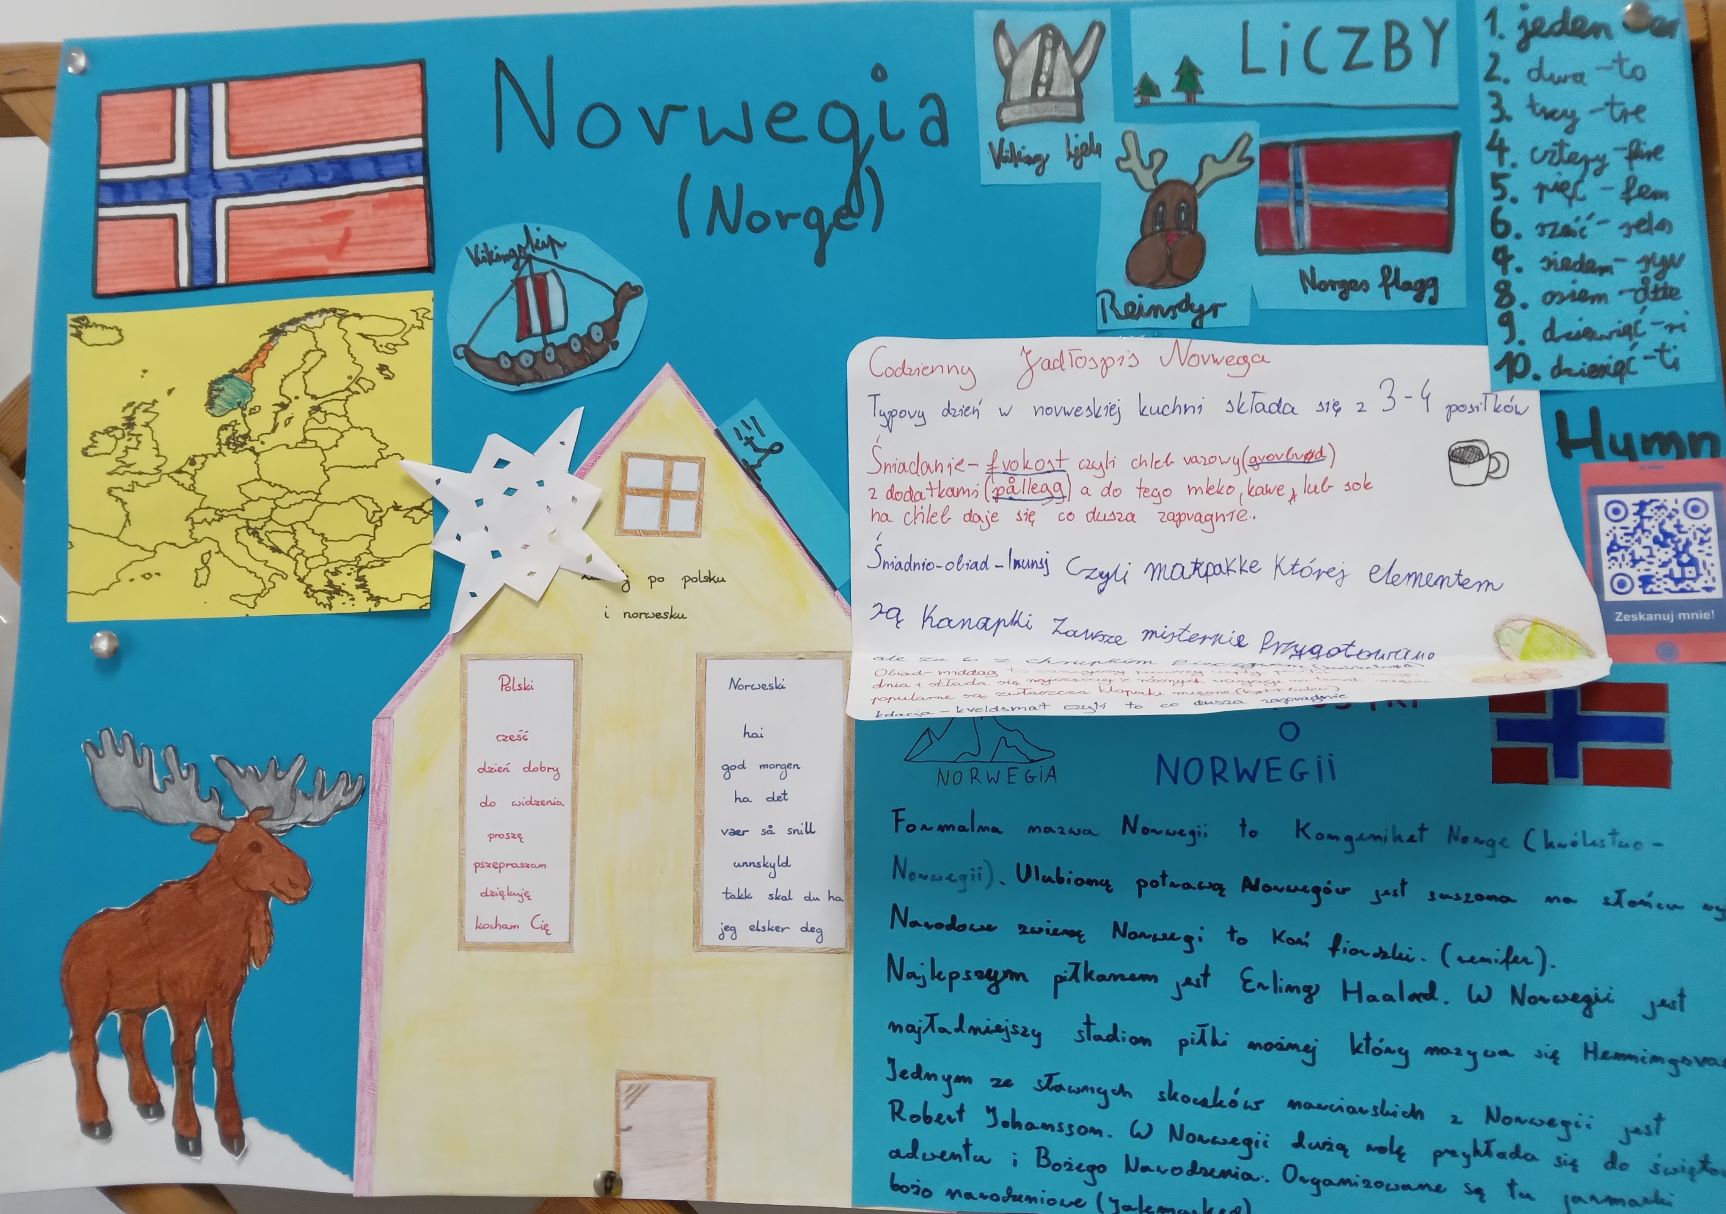 Norwegia
(Norge)
Vikingskip
Viking
Reinsdyr
LiCZBY
Norges flagg
1. jeden
2. dwa - to
3. trzy - tre
4. cztery - fire
5. pięć - fem
6. sześć - seks
7. siedem - syv
8. osiem - åtte
9. dziewięć - ni
10. dziesięć - ti
Hymn
Zeskanuj mnie!
Codzienny Jadłospis Norwega
Typowy dzień w norweskiej kuchni składa się z 3-4 posiłków
Śniadanie- frokost czyli chleb razowy (grovbrød)
z dodatkami (pålegg) a do tego mleko, kawę, lub sok
na chleb daje się co dusza zapragnie.
Śniadnio-obiad - lunsj Czyli matpakke Której elementem
są Kanapki Zawsze misternie Przygotowano
kolacja - kveldsmat czyli to co dusza zapragnie
po polsku
i norwesku
Polski
cześć
dzień dobry
do widzenia
proszę
pszepraszam
dziękuję
kocham Cię
Norweski
hai
god morgen
ha det
vær så snill
unnskyld
takk skal du ha
jeg elsker deg
NORWEGIA
O
NORWEGii
Formalna nazwa Norwegii to Kongeriket Norge (królestwo-
Norwegii). Ulubioną potrawą Norwegów jest suszona na słońcu
Narodowe zwierzę Norwegi to Koń fiordzki. (renifer).
Najlepszym piłkarzem jest Erling Haaland. W Norwegii jest
najładniejszy stadion piłki nożnej który nazywa się
Jednym ze sławnych skoczków narciarskich z Norwegii jest
Robert Johansson. W Norwegii dużą rolę przykłada się do
adwentu i Bożego Narodzenia. Organizowane są tu jarmarki
bożo narodzeniowe